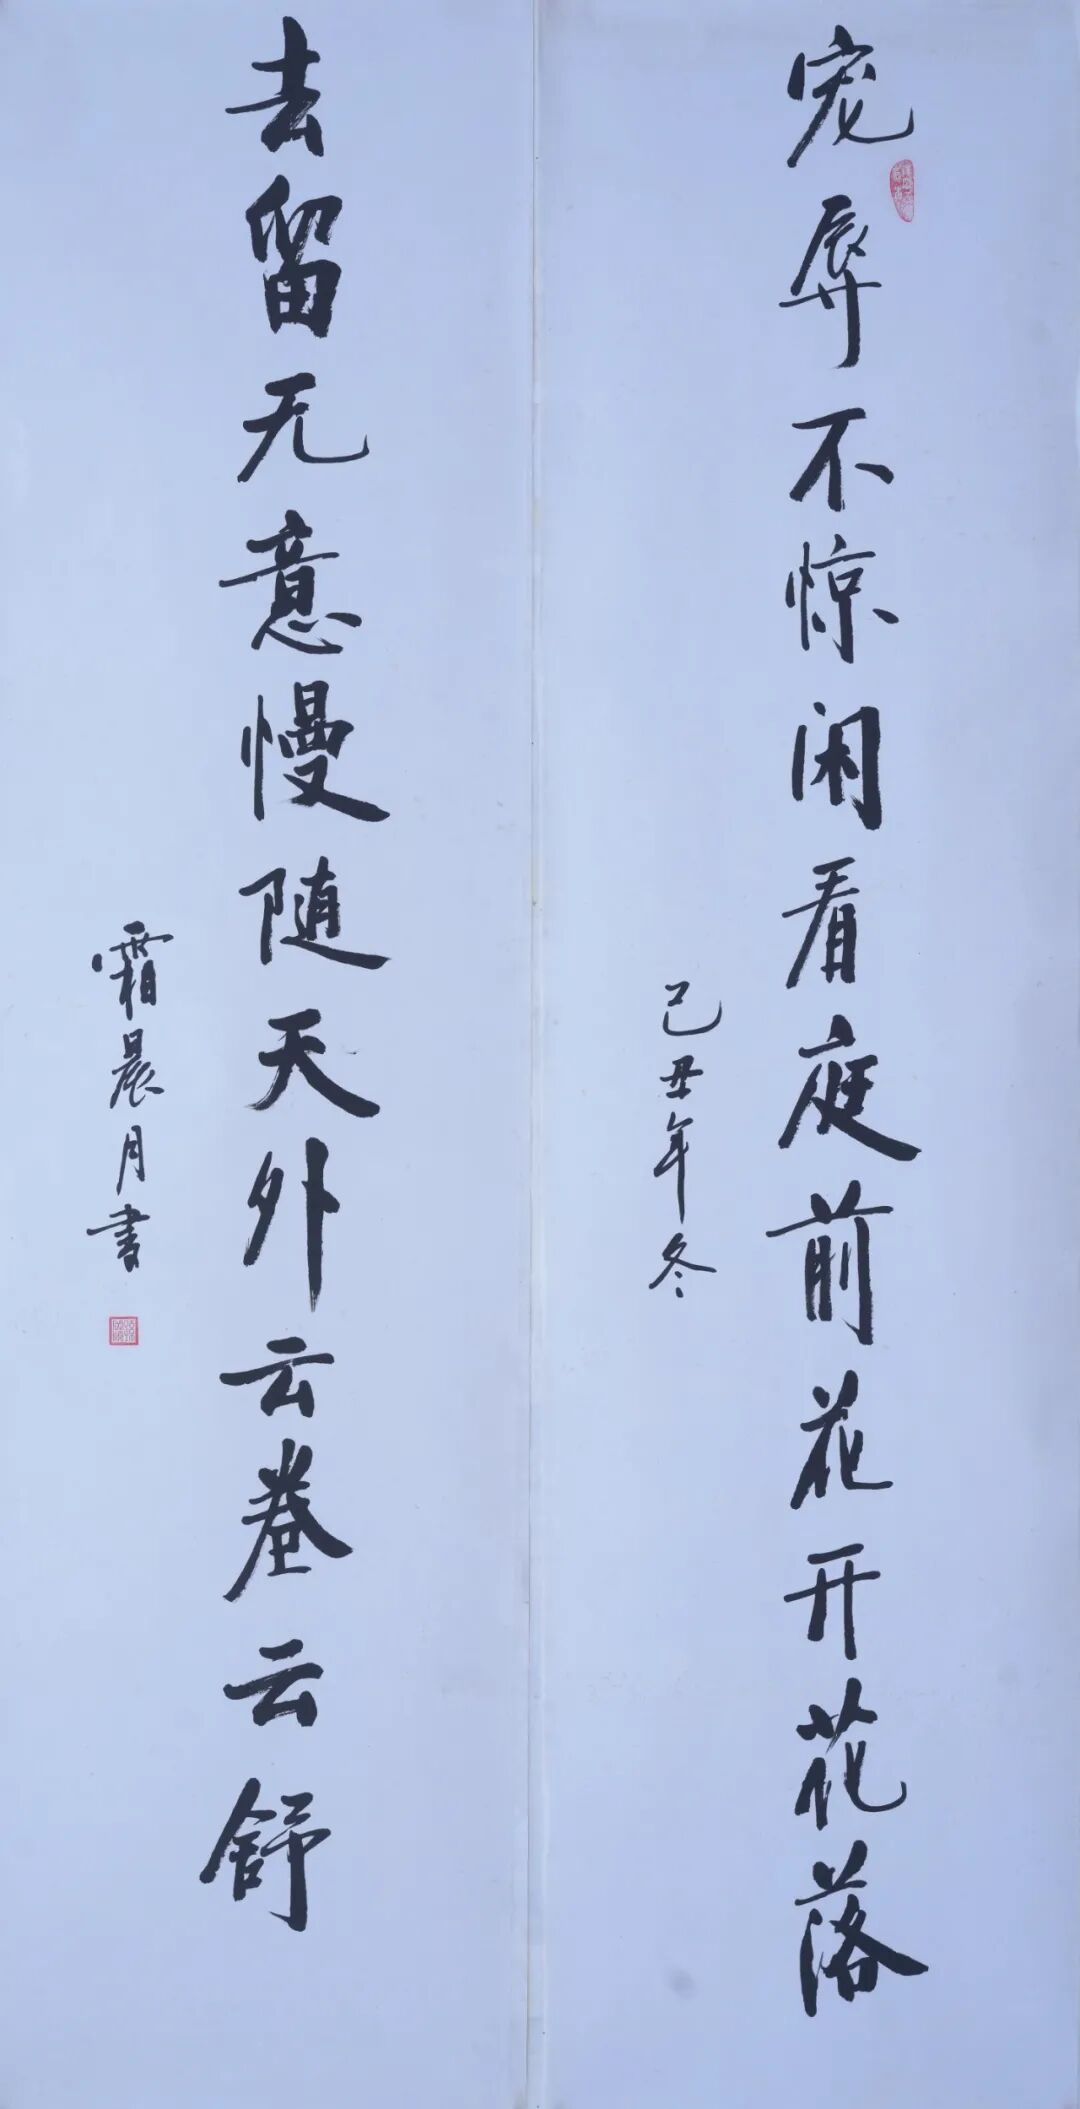 宠辱不惊闲看庭前花开花落
己丑年冬
去留无意慢随天外云卷云舒
霜晨月书